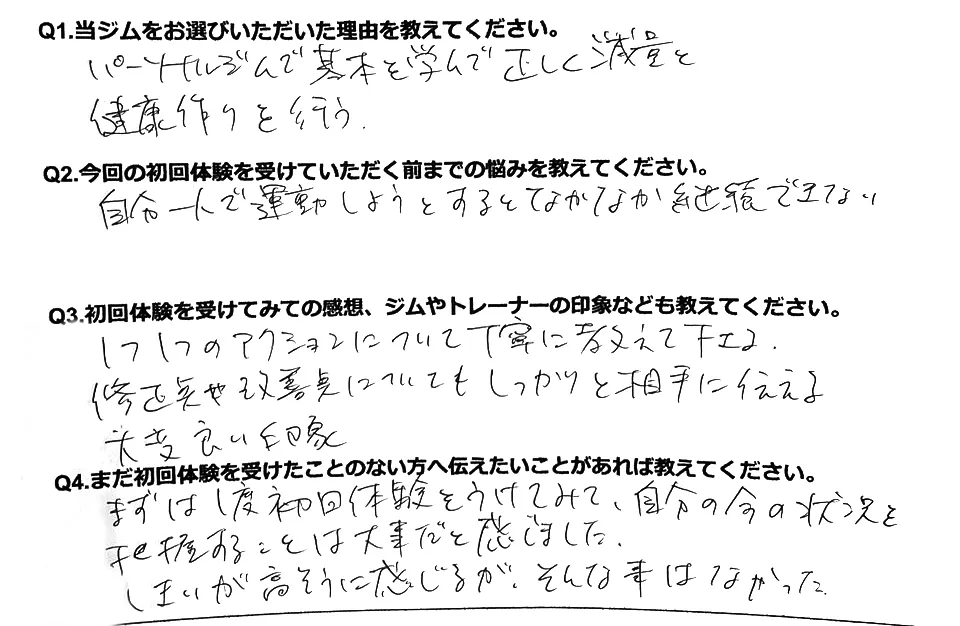 Q1.当ジムをお選びいただいた理由を教えてください。
パーソナルジムで基本を学んで正しく減量と
健康作りを行う.
Q2.今回の初回体験を受けていただく前までの悩みを教えてください。
自分一人で運動しようとするとなかなか継続できない
Q3.初回体験を受けてみての感想、ジムやトレーナーの印象なども教えてください。
1つ1つのアクションについて丁寧に教えて下さる.
修正点や改善点についてもしっかりと相手に伝える
大変良い印象
Q4.まだ初回体験を受けたことのない方へ伝えたいことがあれば教えてください。
まずは1度初回体験をうけてみて、自分の今の状況を
把握することは大事だと感じました.
しきいが高そうに感じるが、そんな事はなかった.